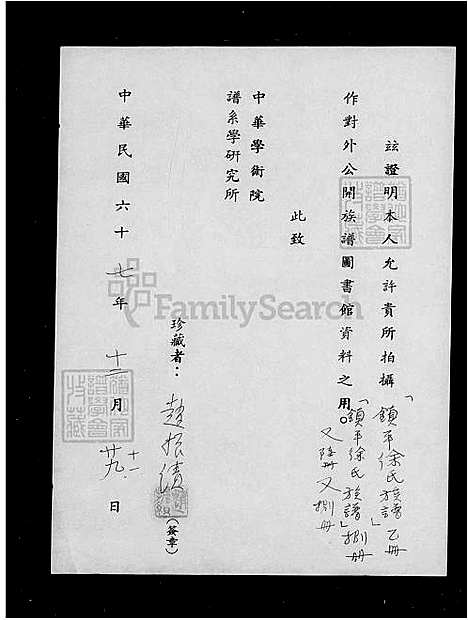 茲證明本人允許貴所拍攝「鎮平徐氏族譜」乙冊
「鎮平徐氏族譜」捌冊
又陸冊又捌冊
作對外公開族譜圖書館資料之用。
此致
中華學術院
譜系學研究所
珍藏者：趙振績（簽章）
中華民國六十七年十二月廿九日
十一
FamilySearch